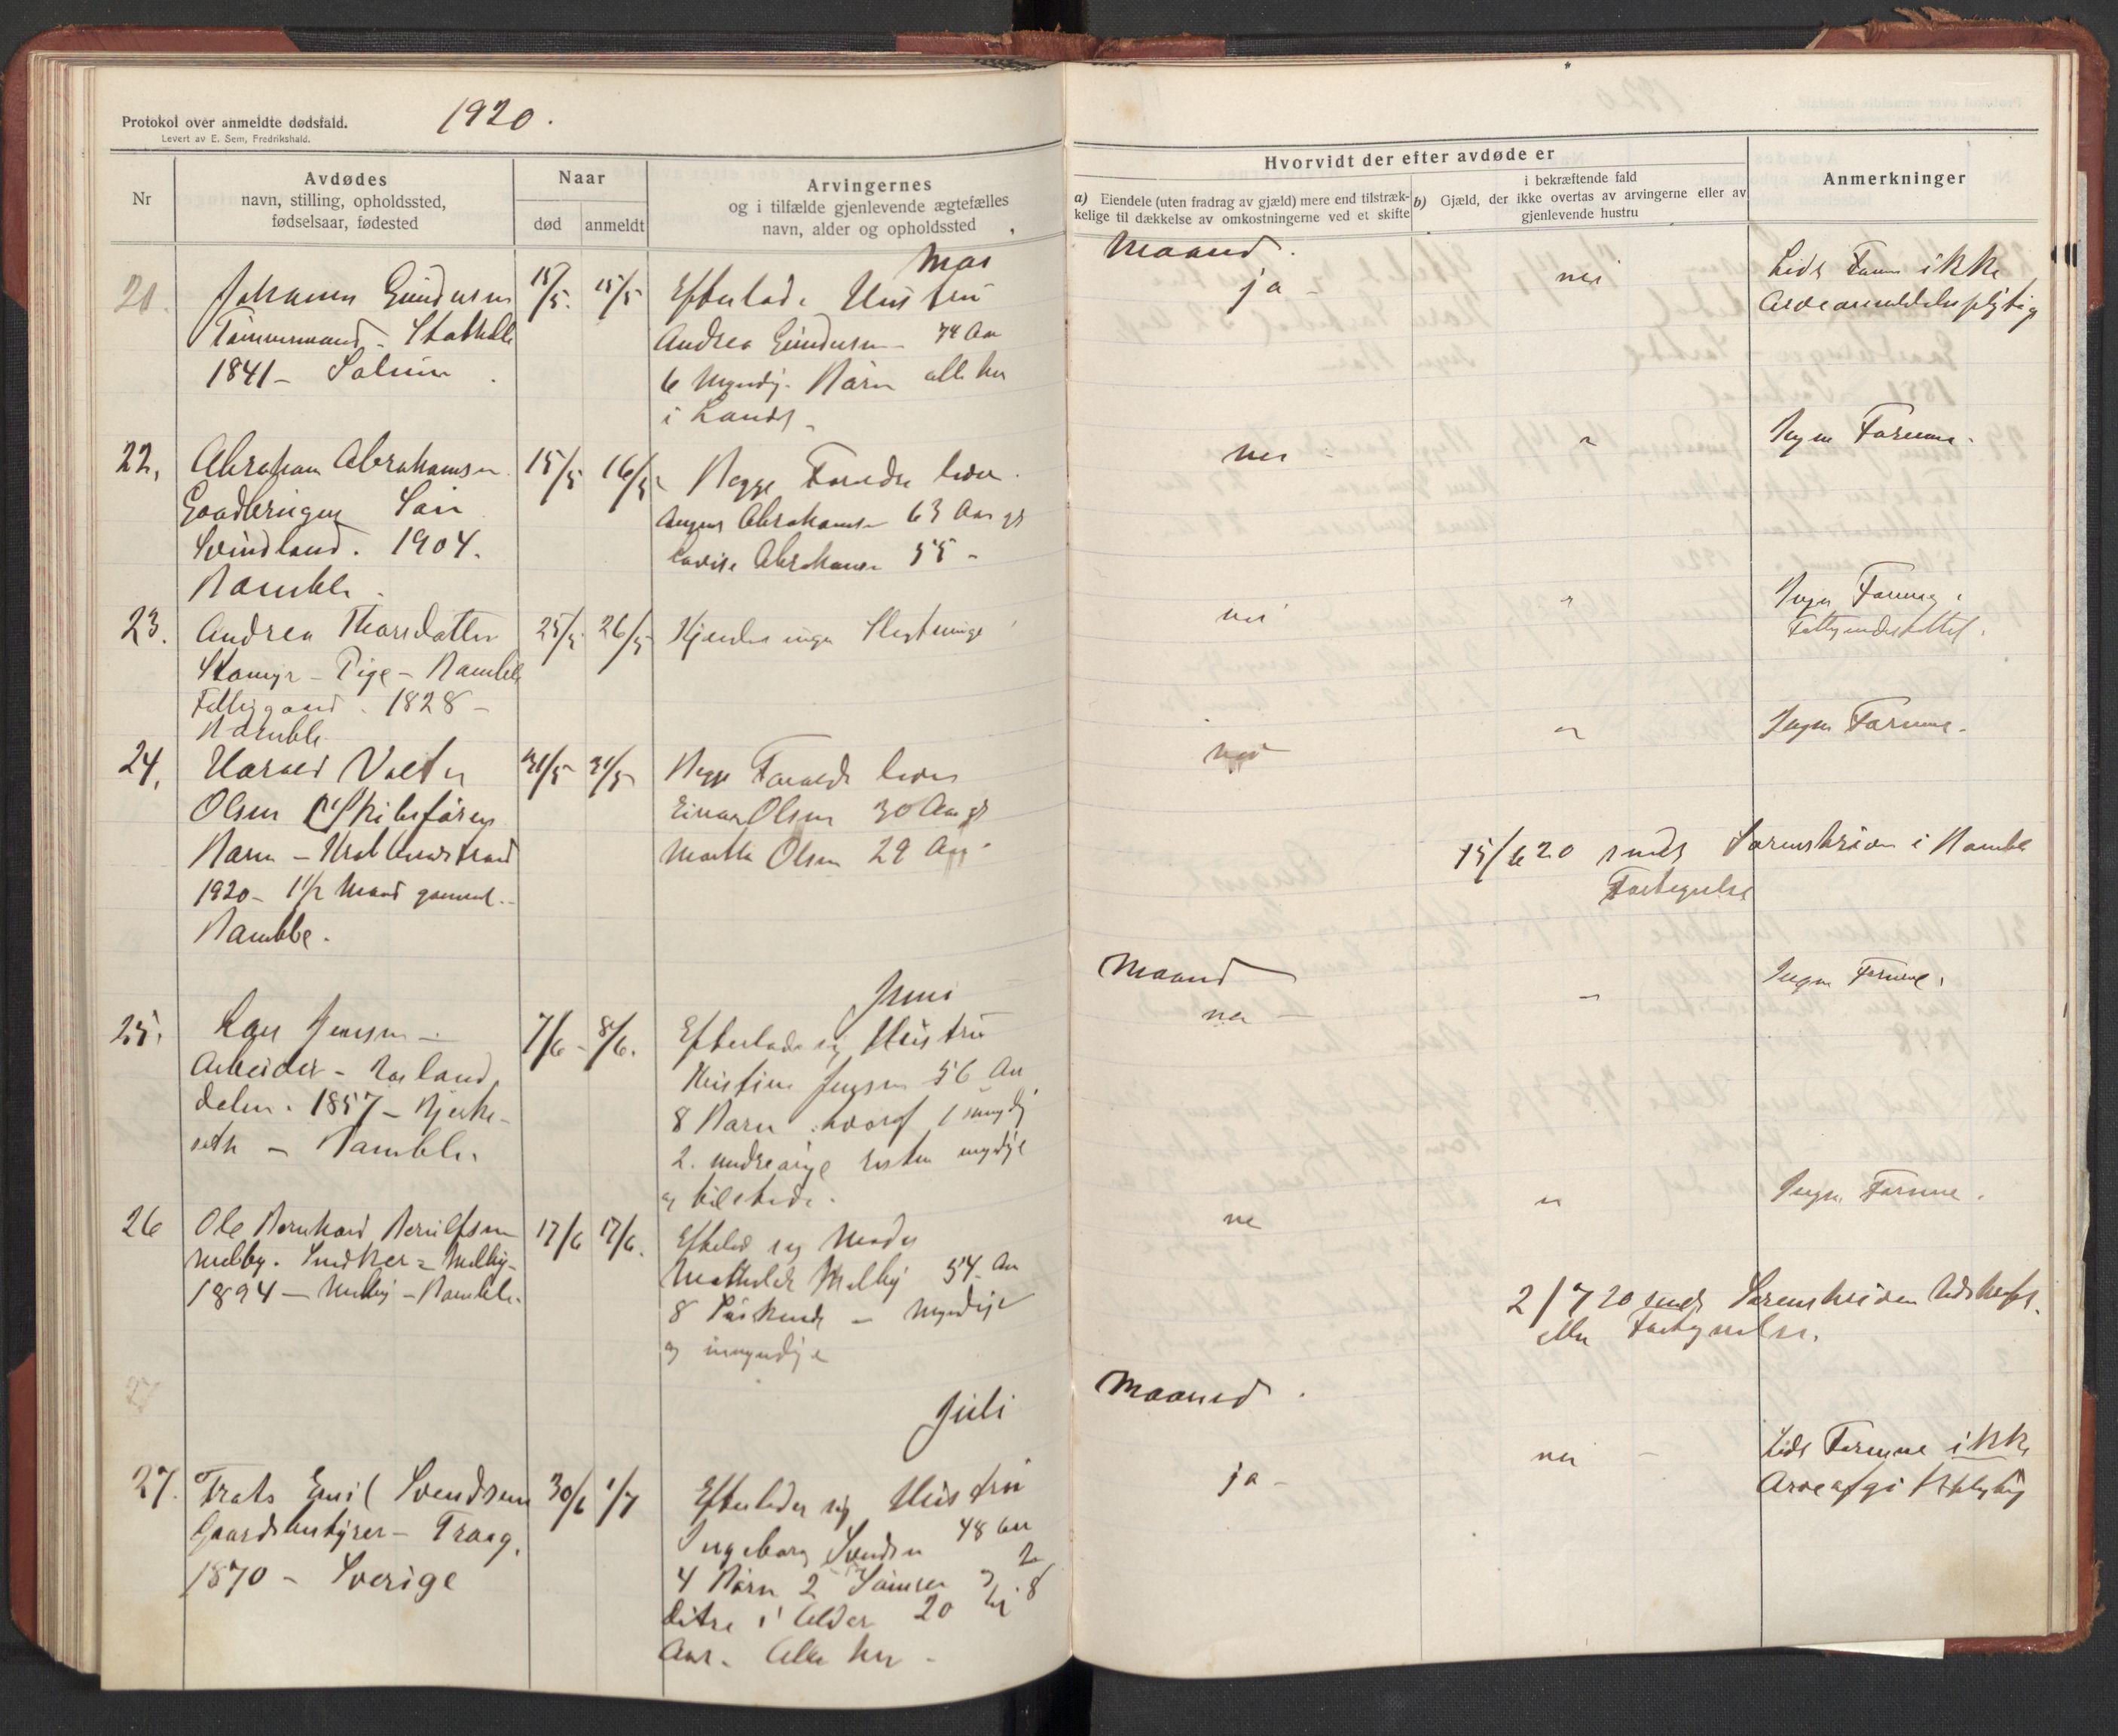 Protokol over anmeldte dødsfald.
Levert av E. Sem, Fredrikshald.
1920.
Nr
Avdødes
navn, stilling, opholdssted,
fødselsaar, fødested
Naar
død
anmeldt
Arvingernes
og i tilfælde gjenlevende ægtefælles
navn, alder og opholdssted
Hvorvidt der efter avdøde er
a) Eiendele (uten fradrag av gjæld) mere end tilstræk-
kelige til dækkelse av omkostningerne ved et skifte
i bekræftende fald
b) Gjæld, der ikke overtas av arvingerne eller av
gjenlevende hustru
Anmerkninger
Mai Maaned.
Johannes Gundersen 15/5. 15/5 Efterlader Hustru ja - nei
Tømmermand - Stathelle Andrea Gundersen - 74 Aar
1841 - Solum 6 Myndig. Børn alle her
i Landet -
ikke
22, Abraham Abrahamsen 15/5 16/5 Begge Forældre lever. nei - Ingen Formue.
Gaardbruger Søn Abrahamsen 63 Aar
Svindland. 1904. Abrahamsen 55 -
Bamble.
23. Andrea Thorsdatter 25/5 26/5 Kjendes ingen Slegtninge nei Ingen Formue.
Pige - Bamble
Fattiggaard. 1828 -
Bamble
24, Harald 31/5 31/5 Begge Forældre lever nei Ingen Formue.
Olsen Skibsfører Einar Olsen 30 Aar
Barn - Martha Olsen 29 Aar
1920 - 1 1/2 Maaned gammel.
Bamble.
15/6 20 sendt Sorenskriver i Bamble
Fortegnelse
Juni Maaned
25, Lars Jensen - 7/6 - 8/6. Efterlader sig Hustru nei - Ingen Formue.
Arbeider - Jensen 56 Aar
dalen. 1857 - 8 Børn hvoraf 1 umyndig
- Bamble. 2. mindreaarige resten myndige
og tilstede.
26 Ole Bernhard 17/6 17/6. Efterlod sig Moder nei Ingen Formue.
Melby. Snedker - Melby - Mathilde Melby 54 Aar
1894 - Melby - Bamble. 8 Søskende - Myndige
og umyndige
2/7 20 sendt Sorenskriveren Udskrift
eller Fortegnelse.
27
Juli Maaned.
27. Emil Svendsen 30/6 1/7 Efterlader sig Hustru ja - nei - Lidt Formue ikke
Gaardsbestyrer - Traag. Ingeborg Svendsen 48 Aar Arveafgiftspligtig
1870 - Sverige 4 Børn 2 Sønner og 2
Døtre i Alder 20 til 8
Aar. Alle her -